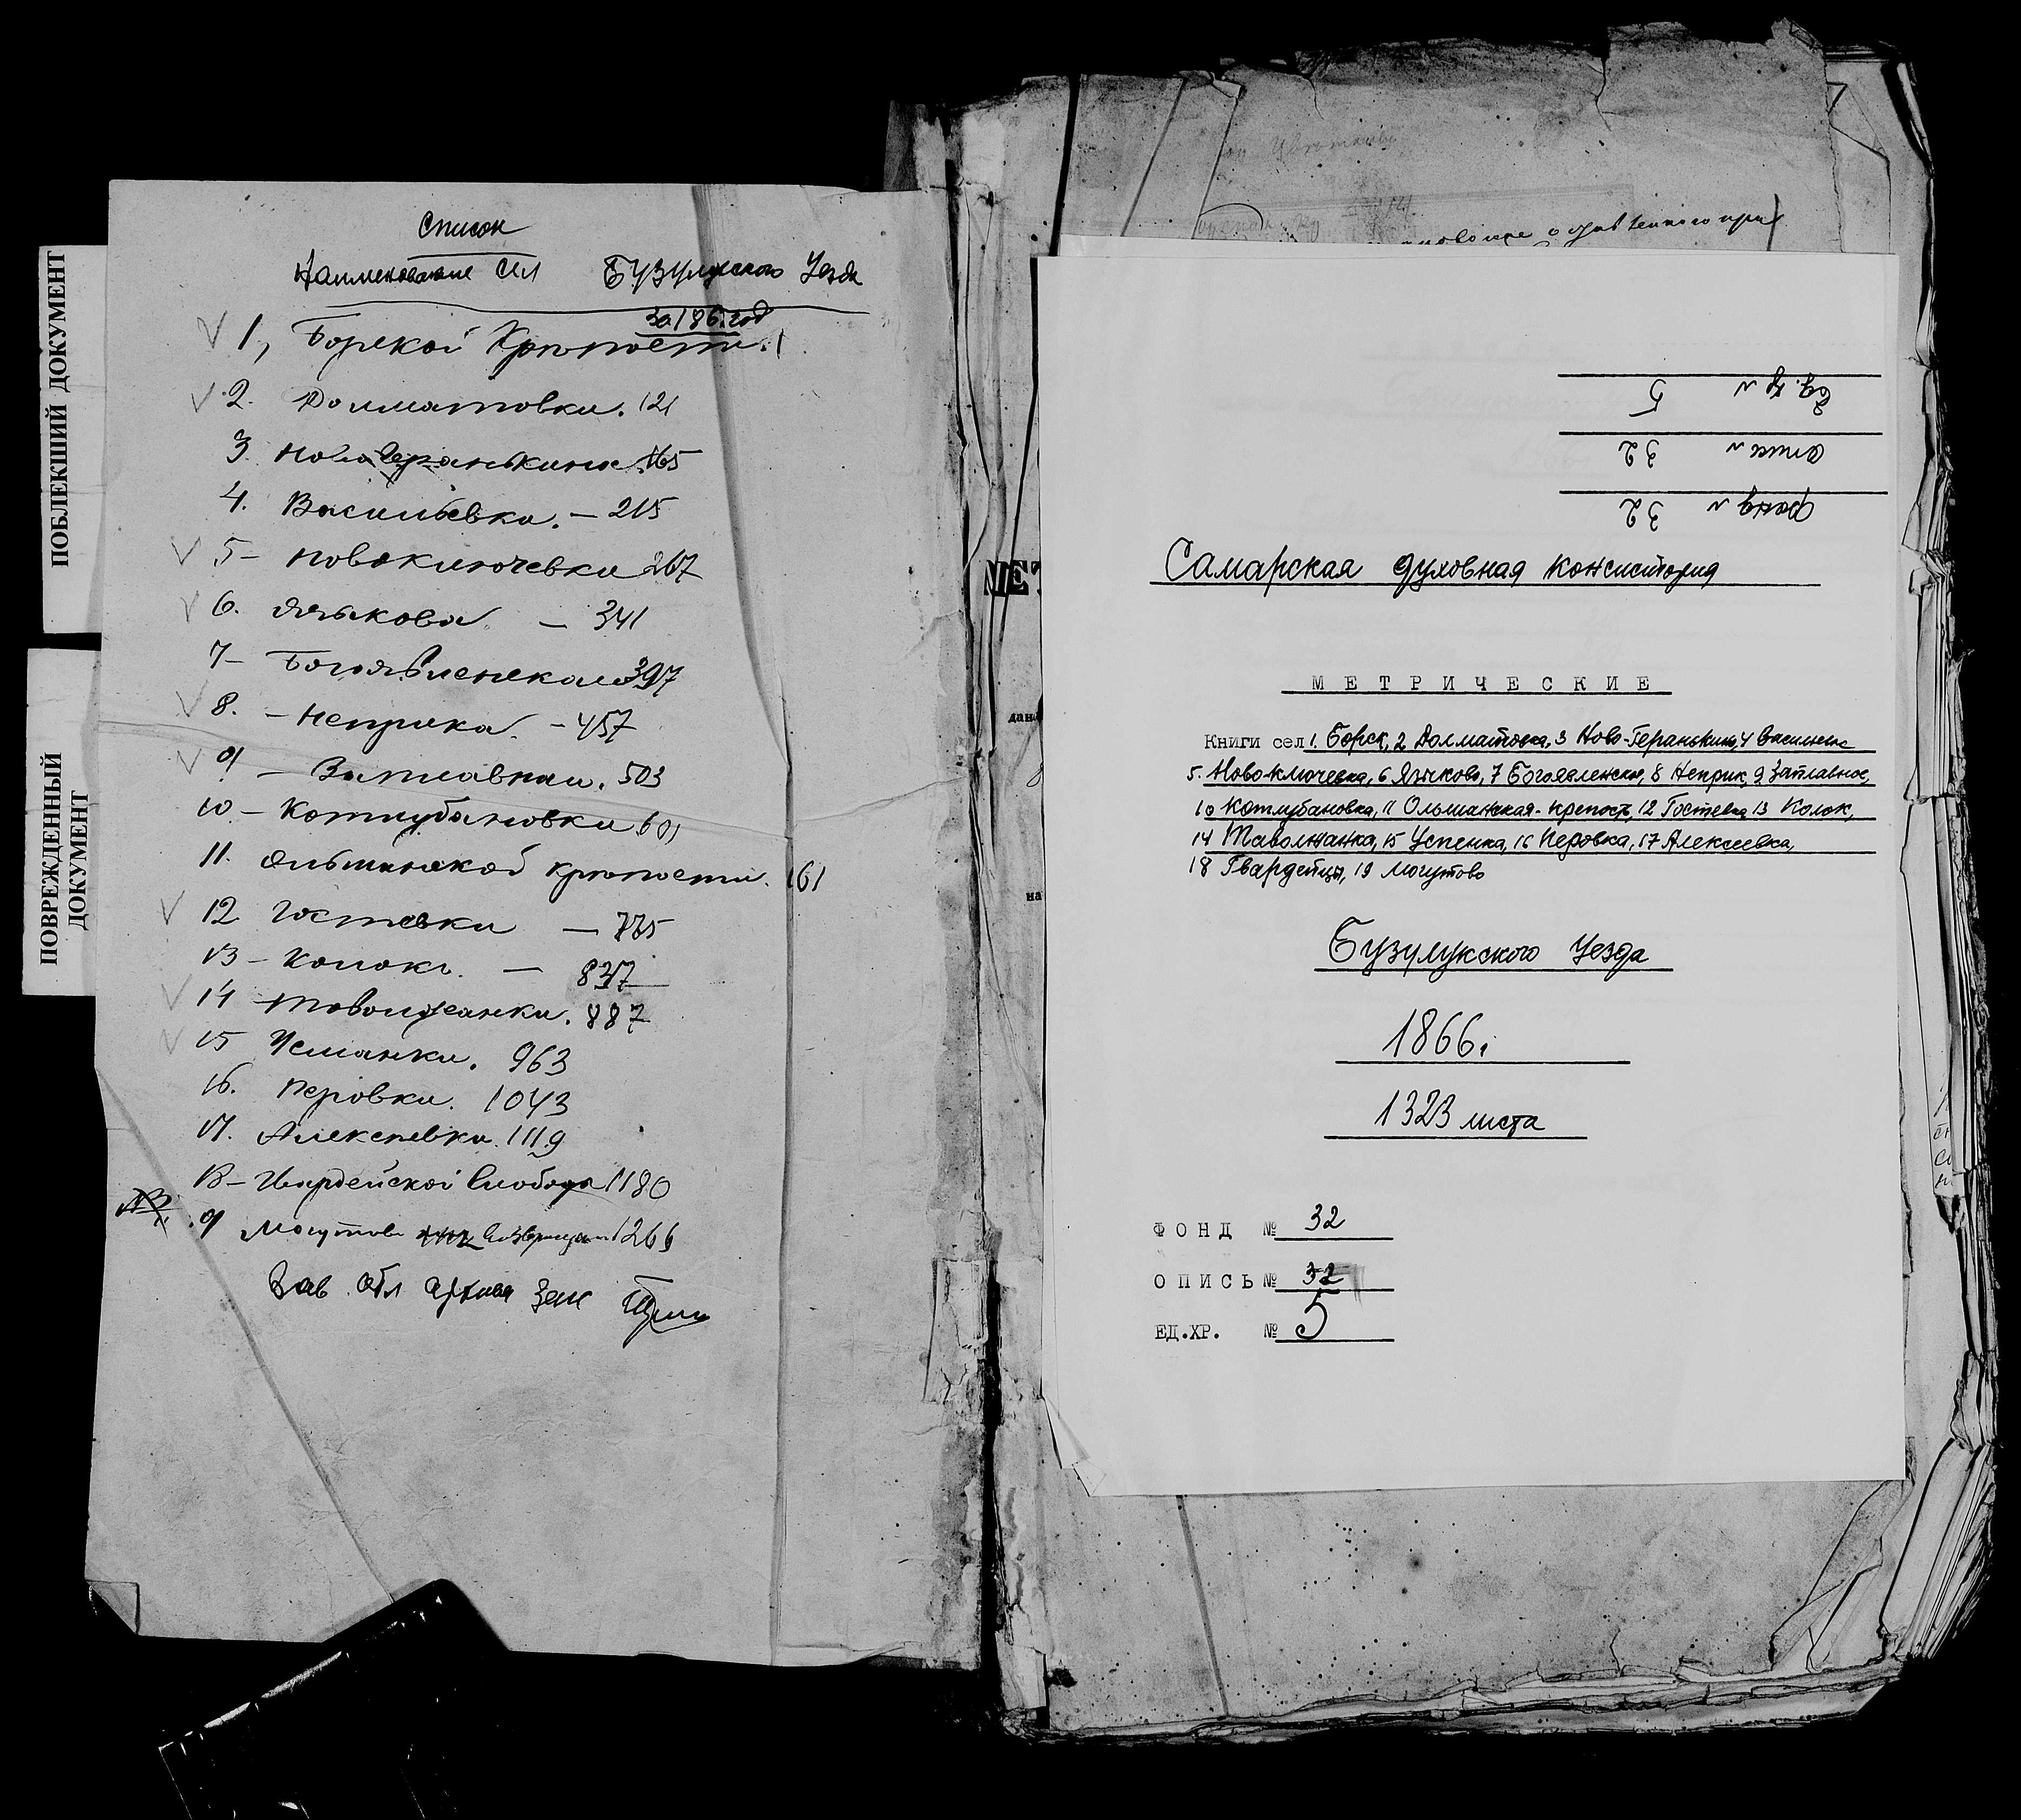 ПОБЛЕКШИЙ ДОКУМЕНТ
ПОВРЕЖДЕННЫЙ
ДОКУМЕНТ
Список
Наименование сел Бузулукского Уезда
за 186. год
1, Борской Крѣпости. 1
2. Долматовки. 121
3. Ново Геранькина 165
4. Васильевки. – 215
5 – Новоключевки 267
6. Языкова. – 341
7 – Богоявленская 397
8. – Неприка. – 457
9 – Заплавная. 503
10. – Котлубановки 601
11. Ольшанской крѣпости. 661
12 Гостевки – 775
13 – Колокъ. – 837
14 – Товолжанки. 887
15 Успанки. 963
16. Перовки. 1043
17. Алексѣевки. 1119
18 – Гвардейской Слобода 1180
19 Могутова 1266
Зав. Обл архива
Ед. хр. № 5
опись № 32
фонд № 32
Самарская духовная консистория
МЕТРИЧЕСКИЕ
Книги сел 1. Борск, 2 Долматовка, 3 Ново-Геранькино, 4 Васильевка
5. Ново-ключевка, 6 Языково, 7 Богоявленское, 8 Неприк, 9 Заплавное,
10 Котлубановка, 11 Ольшанская-крепость, 12 Гостевка 13 Колок,
14 Таволжанка, 15 Успенка, 16 Перовка, 17 Алексеевка,
18 Гвардейцы, 19 Могутово
Бузулукского Уезда
1866г
1323 листа
ФОНД № 32
ОПИСЬ № 32
ЕД.ХР. № 5